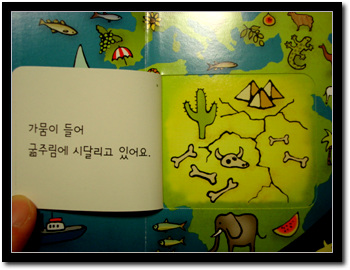 가뭄이 들어
굶주림에 시달리고 있어요.